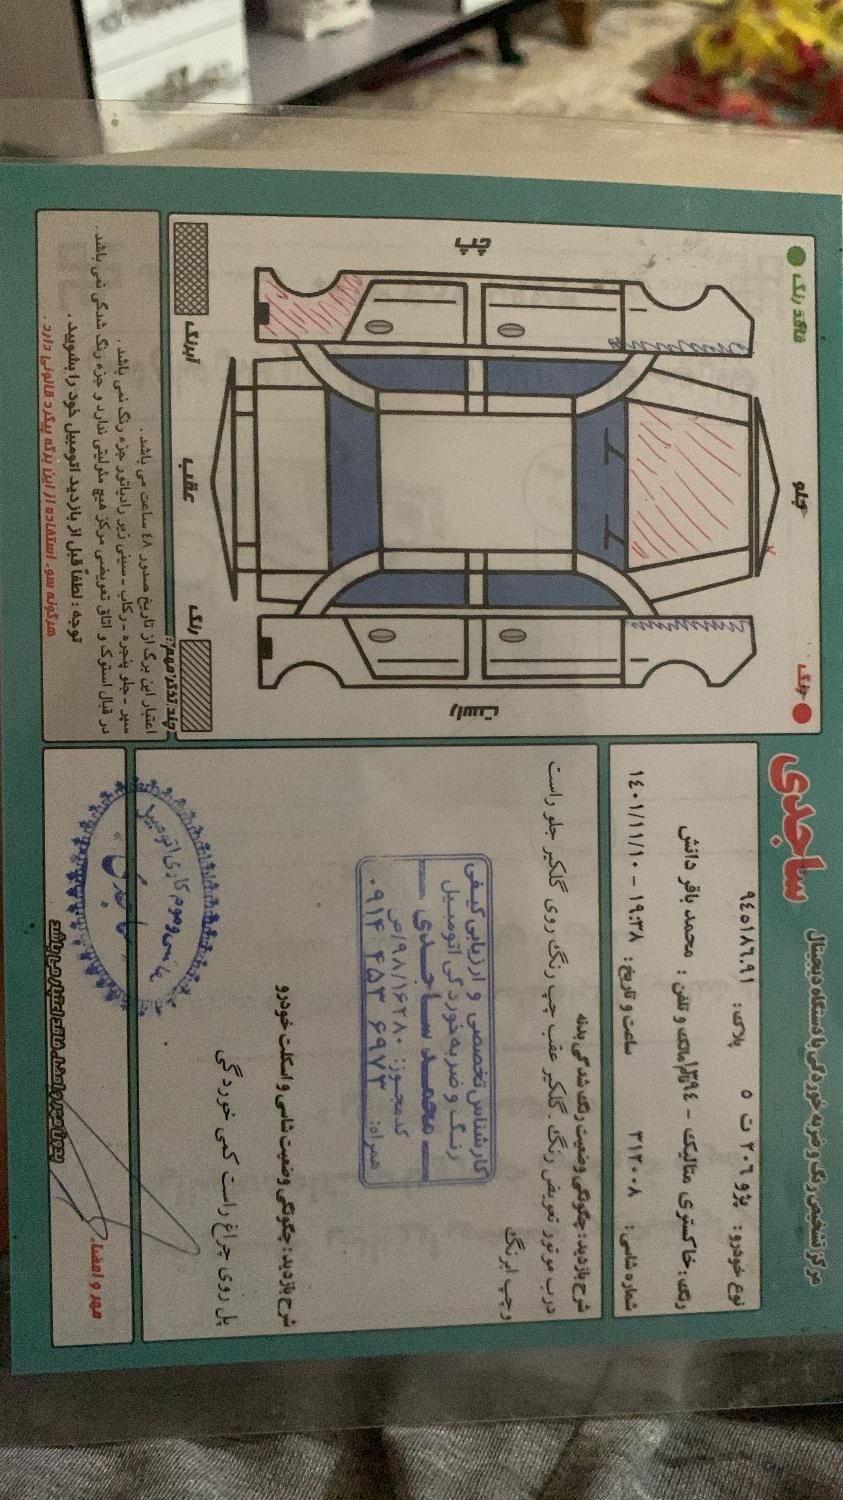 ساجدی
مرکز تشخیص رنگ و ضربه خوردگی با دستگاه دیجیتال
نوع خودرو: پژو ۲۰۶ ت ۵ پلاک: ۹٤۵۱۸٦.۹۱
رنگ: خاکستری متالیک - ۱۳۹٤ نام مالک و تلفن: محمد باقر دانش
شماره شاسی: ۳۱۲۰۰۸ ساعت و تاریخ: ۱۹:۳۸ - ۱٤۰۱/۱۱/۱۰
شرح بازدید: چگونگی وضعیت رنگ شدگی بدنه
درب موتور تعویض رنگ. گلگیر عقب چپ رنگ روی گلگیر جلو راست
و چپ ابرنگ
کارشناس تخصصی و ارزیابی کیفی
رنگ و ضربه خوردگی اتومبیل
محمد ساجدی
کد مجوز: ۹۸/۱۶۲۸۰/ص
همراه: ۰۹۱۴ ۴۵۳ ۶۹۷۳
شرح بازدید: چگونگی وضعیت شاسی و اسکلت خودرو
پل روی چراغ راست کمی خوردگی
مهر و امضاء
بدون مهر و امضاء فاقد اعتبار می باشد
کاری اتومبیل
ساجدی
فاقد رنگ
رنگ
چپ
جلو
راست
عقب
آبرنگ
رنگ
چند تذکر مهم:
اعتبار این برگ از تاریخ صدور ٤۸ ساعت می باشد.
سپر - جلو پنجره - رکاب - سینی زیر رادیاتور جزء رنگ نمی باشد.
در قبال استوک و اتاق تعویضی مرکز هیچ مئولیتی ندارد و جزء رنگ شدگی نمی باشد.
توجه: لطفاً قبل از بازدید اتومبیل خود را بشویید.
هرگونه سوء استفاده از این برگه پیگرد قانونی دارد.